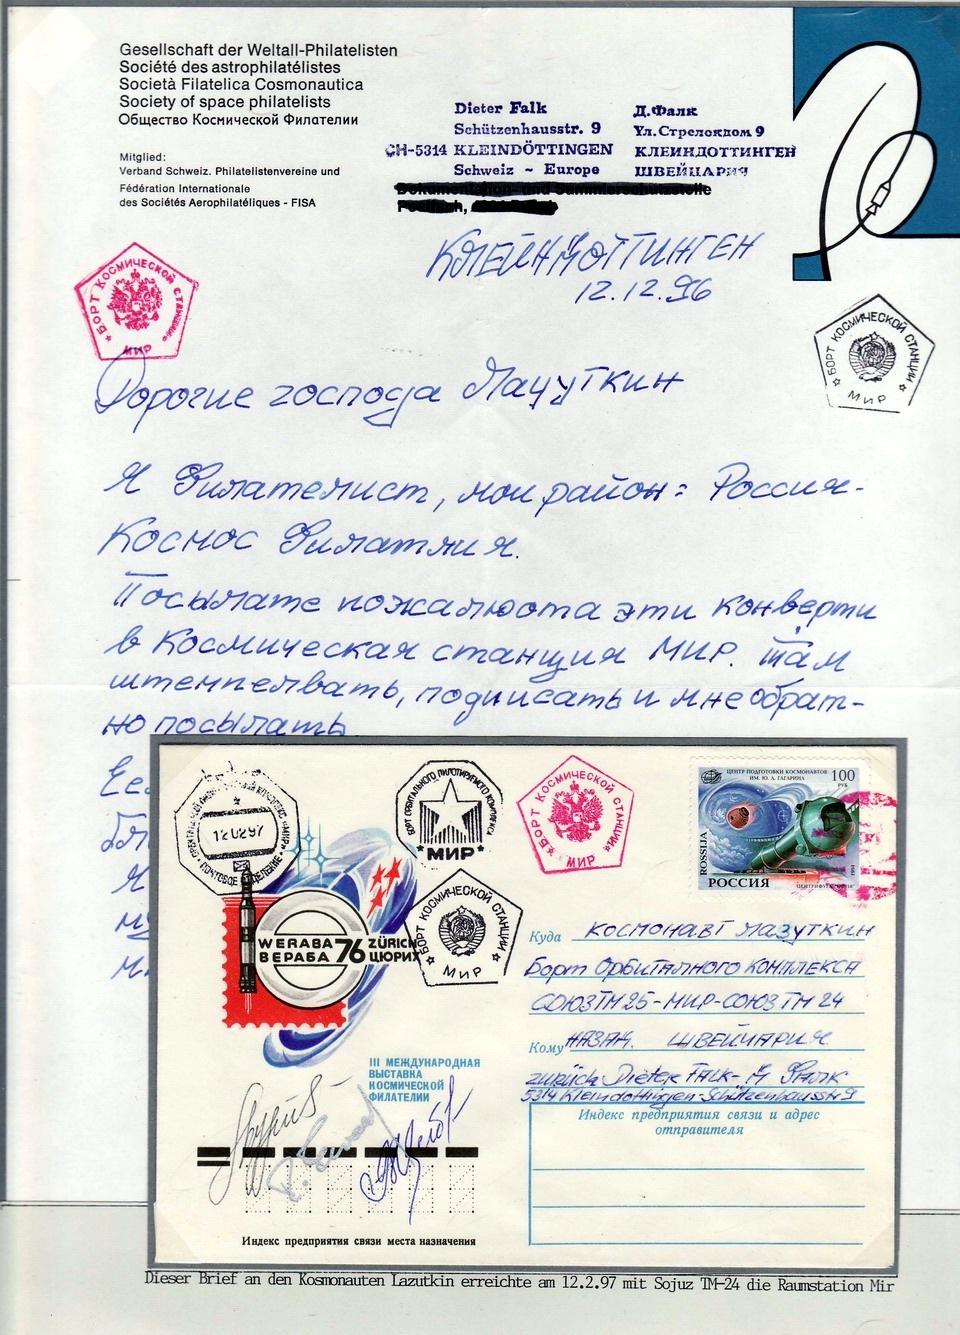 Gesellschaft der Weltall-Philatelisten
Société des astrophilatélistes
Società Filatelica Cosmonautica
Society of space philatelists
Общество Космической Филателии
Mitglied:
Verband Schweiz. Philatelistenvereine und
Fédération Internationale
des Sociétés Aerophilatéliques - FISA
Dieter Falk
Schützenhausstr. 9
CH-5314 KLEINDÖTTINGEN
Schweiz ~ Europe
Д.Фалк
Ул.Стрелокдом 9
КЛЕИНДОТТИНГЕН
ШВЕЙЦАРИЯ
Dokumentation- und Sammlerschutzstelle
КЛЕЙНДОТТИНГЕН
12.12.96
БОРТ КОСМИЧЕСКОЙ СТАНЦИИ
МИР
БОРТ КОСМИЧЕСКОЙ СТАНЦИИ
МИР
Дорогие господа Лазуткин
Я Филателист, мои район: Россия-
Космос Филатлия.
Посылате пожалюста эти конверти
в Космическая станция МИР. там
штемпелвать, подписать и мне обрат-
но посылать
12 02 97
ПОЧТОВОЕ ОТДЕЛЕНИЕ
БОРТ ОРБИТАЛЬНОГО ПИЛОТИРУЕМОГО КОМПЛЕКСА
МИР
БОРТ КОСМИЧЕСКОЙ СТАНЦИИ
МИР
БОРТ КОСМИЧЕСКОЙ СТАНЦИИ
МИР
ЦЕНТР ПОДГОТОВКИ КОСМОНАВТОВ
ИМ. Ю.А. ГАГАРИНА
100
РУБ
ROSSIJA
РОССИЯ
WERABA 76 ZÜRICH
ВЕРАБА ЦЮРИХ
III МЕЖДУНАРОДНАЯ
ВЫСТАВКА
КОСМИЧЕСКОЙ
ФИЛАТЕЛИИ
Куда космонавт Лазуткин
Борт Орбиталного Комплекса
СОЮЗ ТМ 25-МИР-СОЮЗ ТМ 24
Кому НАЗАД. ШВЕЙЦАРИЯ
zurück Dieter FALK-
5314 Kleindottingen-Schützenhausstr 9
Индекс предприятия связи и адрес
отправителя
Индекс предприятия связи места назначения
Dieser Brief an den Kosmonauten Lazutkin erreichte am 12.2.97 mit Sojuz TM-24 die Raumstation Mir